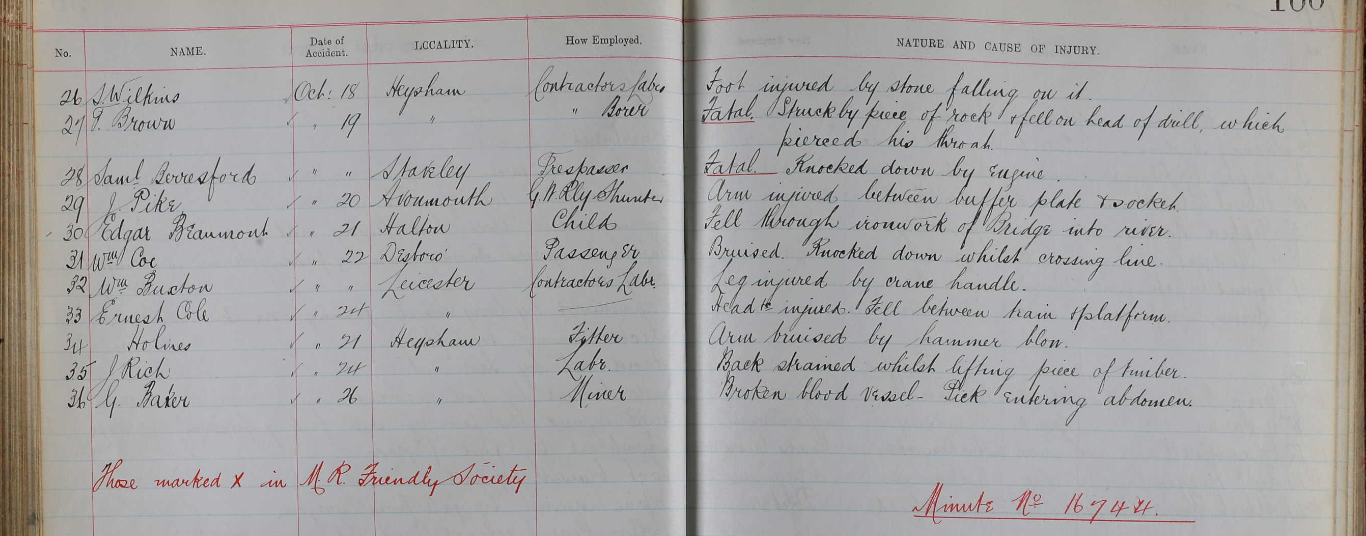 No. NAME. Date of Accident. LOCALITY. How Employed. NATURE AND CAUSE OF INJURY.
26 S. Wilkins Oct: 18 Heysham Contractors Labr Foot injured by stone falling on it.
27 P. Brown ✓ " 19 " " Borer Fatal. Struck by piece of rock & fell on head of drill, which
pierced his throat.
28 Saml Berresford ✓ " " Staveley Trespasser Fatal. Knocked down by Engine.
29 J Pike ✓ " 20 Avonmouth G W Rly Shunter Arm injured between buffer plate & socket.
30 Edgar Beaumont ✓ " 21 Halton Child Fell through ironwork of Bridge into river.
31 Wm Coe ✓ " 22 Desboro' Passenger Bruised. Knocked down whilst crossing line.
32 Wm Buxton ✓ " " Leicester Contractors Labr. Leg injured by crane handle.
33 Ernest Cole ✓ " 24 " — Head &c injured. Fell between train & platform.
34 Holmes ✓ " 21 Heysham Fitter Arm bruised by hammer blow.
35 J Rich ✓ " 24 " Labr. Back strained whilst lifting piece of timber.
36 G. Baker ✓ " 26 " Miner Broken blood vessel - Pick entering abdomen.
Those marked X in M. R. Friendly Society
Minute No 16744.